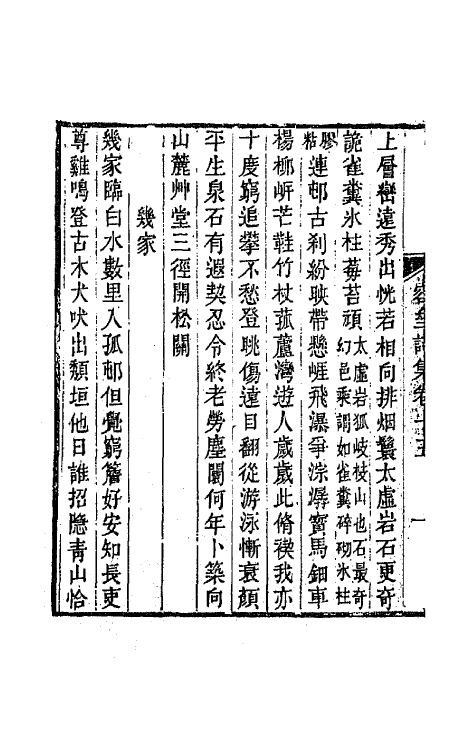 上層巒遠秀出恍若相向排烟鬟太虛岩石更奇
詭雀糞氷柱莓苔頑太虛岩狐岐枝山也石最奇幻邑乘謂如雀糞碎砌氷柱
膠粘連邨古刹紛映帶懸崕飛瀑爭淙潺寶馬鈿車
楊柳岍芒鞋竹杖菰蘆灣遊人歲歲此脩禊我亦
十度窮追攀不愁登眺傷遠目翻從游泳慚衰顏
平生泉石有遐契忍令終老勞塵闤何年卜築向
山麓艸堂三徑開松關
幾家
幾家臨白水數里入孤邨但覺窮簷好安知長吏
尊雞鳴登古木犬吠出頹垣他日誰招隱青山恰
詩集卷十五
一